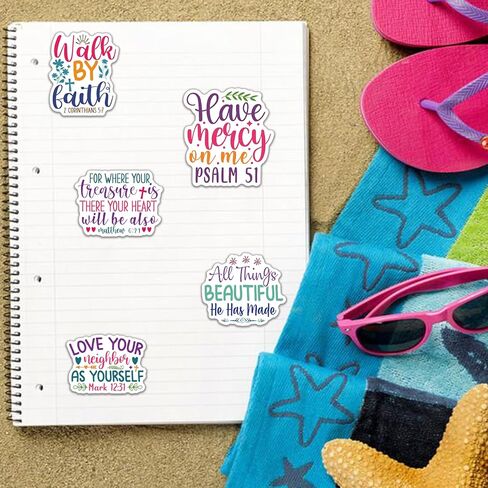 Walk
BY
faith
2 CORINTHIANS 5:7
Have
mercy
on me
PSALM 51
FOR WHERE YOUR
treasure is
THERE YOUR HEART
will be also
matthew 6:21
All Things
BEAUTIFUL
He Has Made
LOVE YOUR
neighbor
AS YOURSELF
Mark 12:31